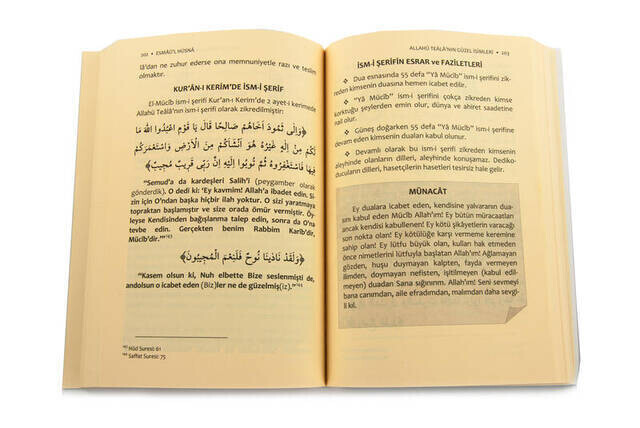 202 • ESMÂÜ'L HÜSNÂ
lâ'dan ne zuhur ederse ona memnuniyetle razı ve teslim
olmaktır.
KUR'ÂN-I KERİM'DE İSM-İ ŞERİF
El-Mucîb ism-i şerifi Kur'an-ı Kerim'de 2 ayet-i kerimede
Allahü Teâlâ'nın ism-i şerifi olarak zikredilmiştir:
﴿وَإِلَى ثَمُودَ أَخَاهُمْ صَالِحًا قَالَ يَا قَوْمِ اعْبُدُوا اللهَ مَا
لَكُمْ مِنْ إِلَهٍ غَيْرُهُ هُوَ أَنْشَأَكُمْ مِنَ الْأَرْضِ وَاسْتَعْمَرَكُمْ
فِيهَا فَاسْتَغْفِرُوهُ ثُمَّ تُوبُوا إِلَيْهِ إِنَّ رَبِّي قَرِيبٌ مُجِيبٌ﴾
"Semud'a da kardeşleri Salih'i (peygamber olarak
gönderdik). O dedi ki: 'Ey kavmim! Allah'a ibadet edin. Si-
zin için O'ndan başka hiçbir ilah yoktur. O sizi yaratmaya
topraktan başlamıştır ve size orada ömür vermiştir. Öy-
leyse Kendisinden bağışlanma talep edin, sonra da O'na
tevbe edin. Gerçekten benim Rabbim Karîb'dir,
Mücîb'dir.'"¹⁶³
﴿وَلَقَدْ نَادَيْنَا نُوحٌ فَلَنِعْمَ الْمُجِيبُونَ﴾
"Kasem olsun ki, Nuh elbette Bize seslenmişti de,
andolsun o icabet eden (Biz)ler ne de güzelmiş(iz)."¹⁶⁴
¹⁶³ Hûd Suresi: 61
¹⁶⁴ Saffat Suresi: 75
ALLAHÜ TEÂLÂ'NIN GÜZEL İSİMLERİ • 203
İSM-İ ŞERİFİN ESRAR ve FAZİLETLERİ
❖ Dua esnasında 55 defa "Yâ Mücîb" ism-i şerifini zik-
reden kimsenin duasına hemen icabet edilir.
❖ "Yâ Mücîb" ism-i şerifini çokça zikreden kimse
korktuğu şeylerden emin olur, dünya ve ahiret saadetine
nail olur.
❖ Güneş doğarken 55 defa "Yâ Mücîb" ism-i şerifini
zikreden kimsenin duaları kabul olunur.
❖ Devamlı olarak bu ism-i şerifi zikreden kimsenin
aleyhinde olanların dilleri, aleyhinde konuşamaz. Dediko-
ducuların dilleri, hasetçilerin hasetleri tesirsiz hale gelir.
MÜNACÂT
Ey dualara icabet eden, kendisine yalvaranın duası-
nı kabul eden Mücîb Allah'ım! Ey bütün müracaatları
ancak kendisi kabullenen! Ey kötü şikâyetlerin varacağı
son nokta olan! Ey kötülüğe karşı vermeme keremine
sahip olan! Ey lütfu büyük olan, kulları hak etmeden
önce nimetlerini lütuyla başlatan Allah'ım! Ağlamayan
gözden, huşu duymayan kalpten, fayda vermeyen
ilimden, doymayan nefisten, işitilmeyen (kabul edil-
meyen) duadan Sana sığınırım. Allah'ım! Seni sevmeyi
bana canımdan, aile efradımdan, malımdan daha sevgi-
li kıl.